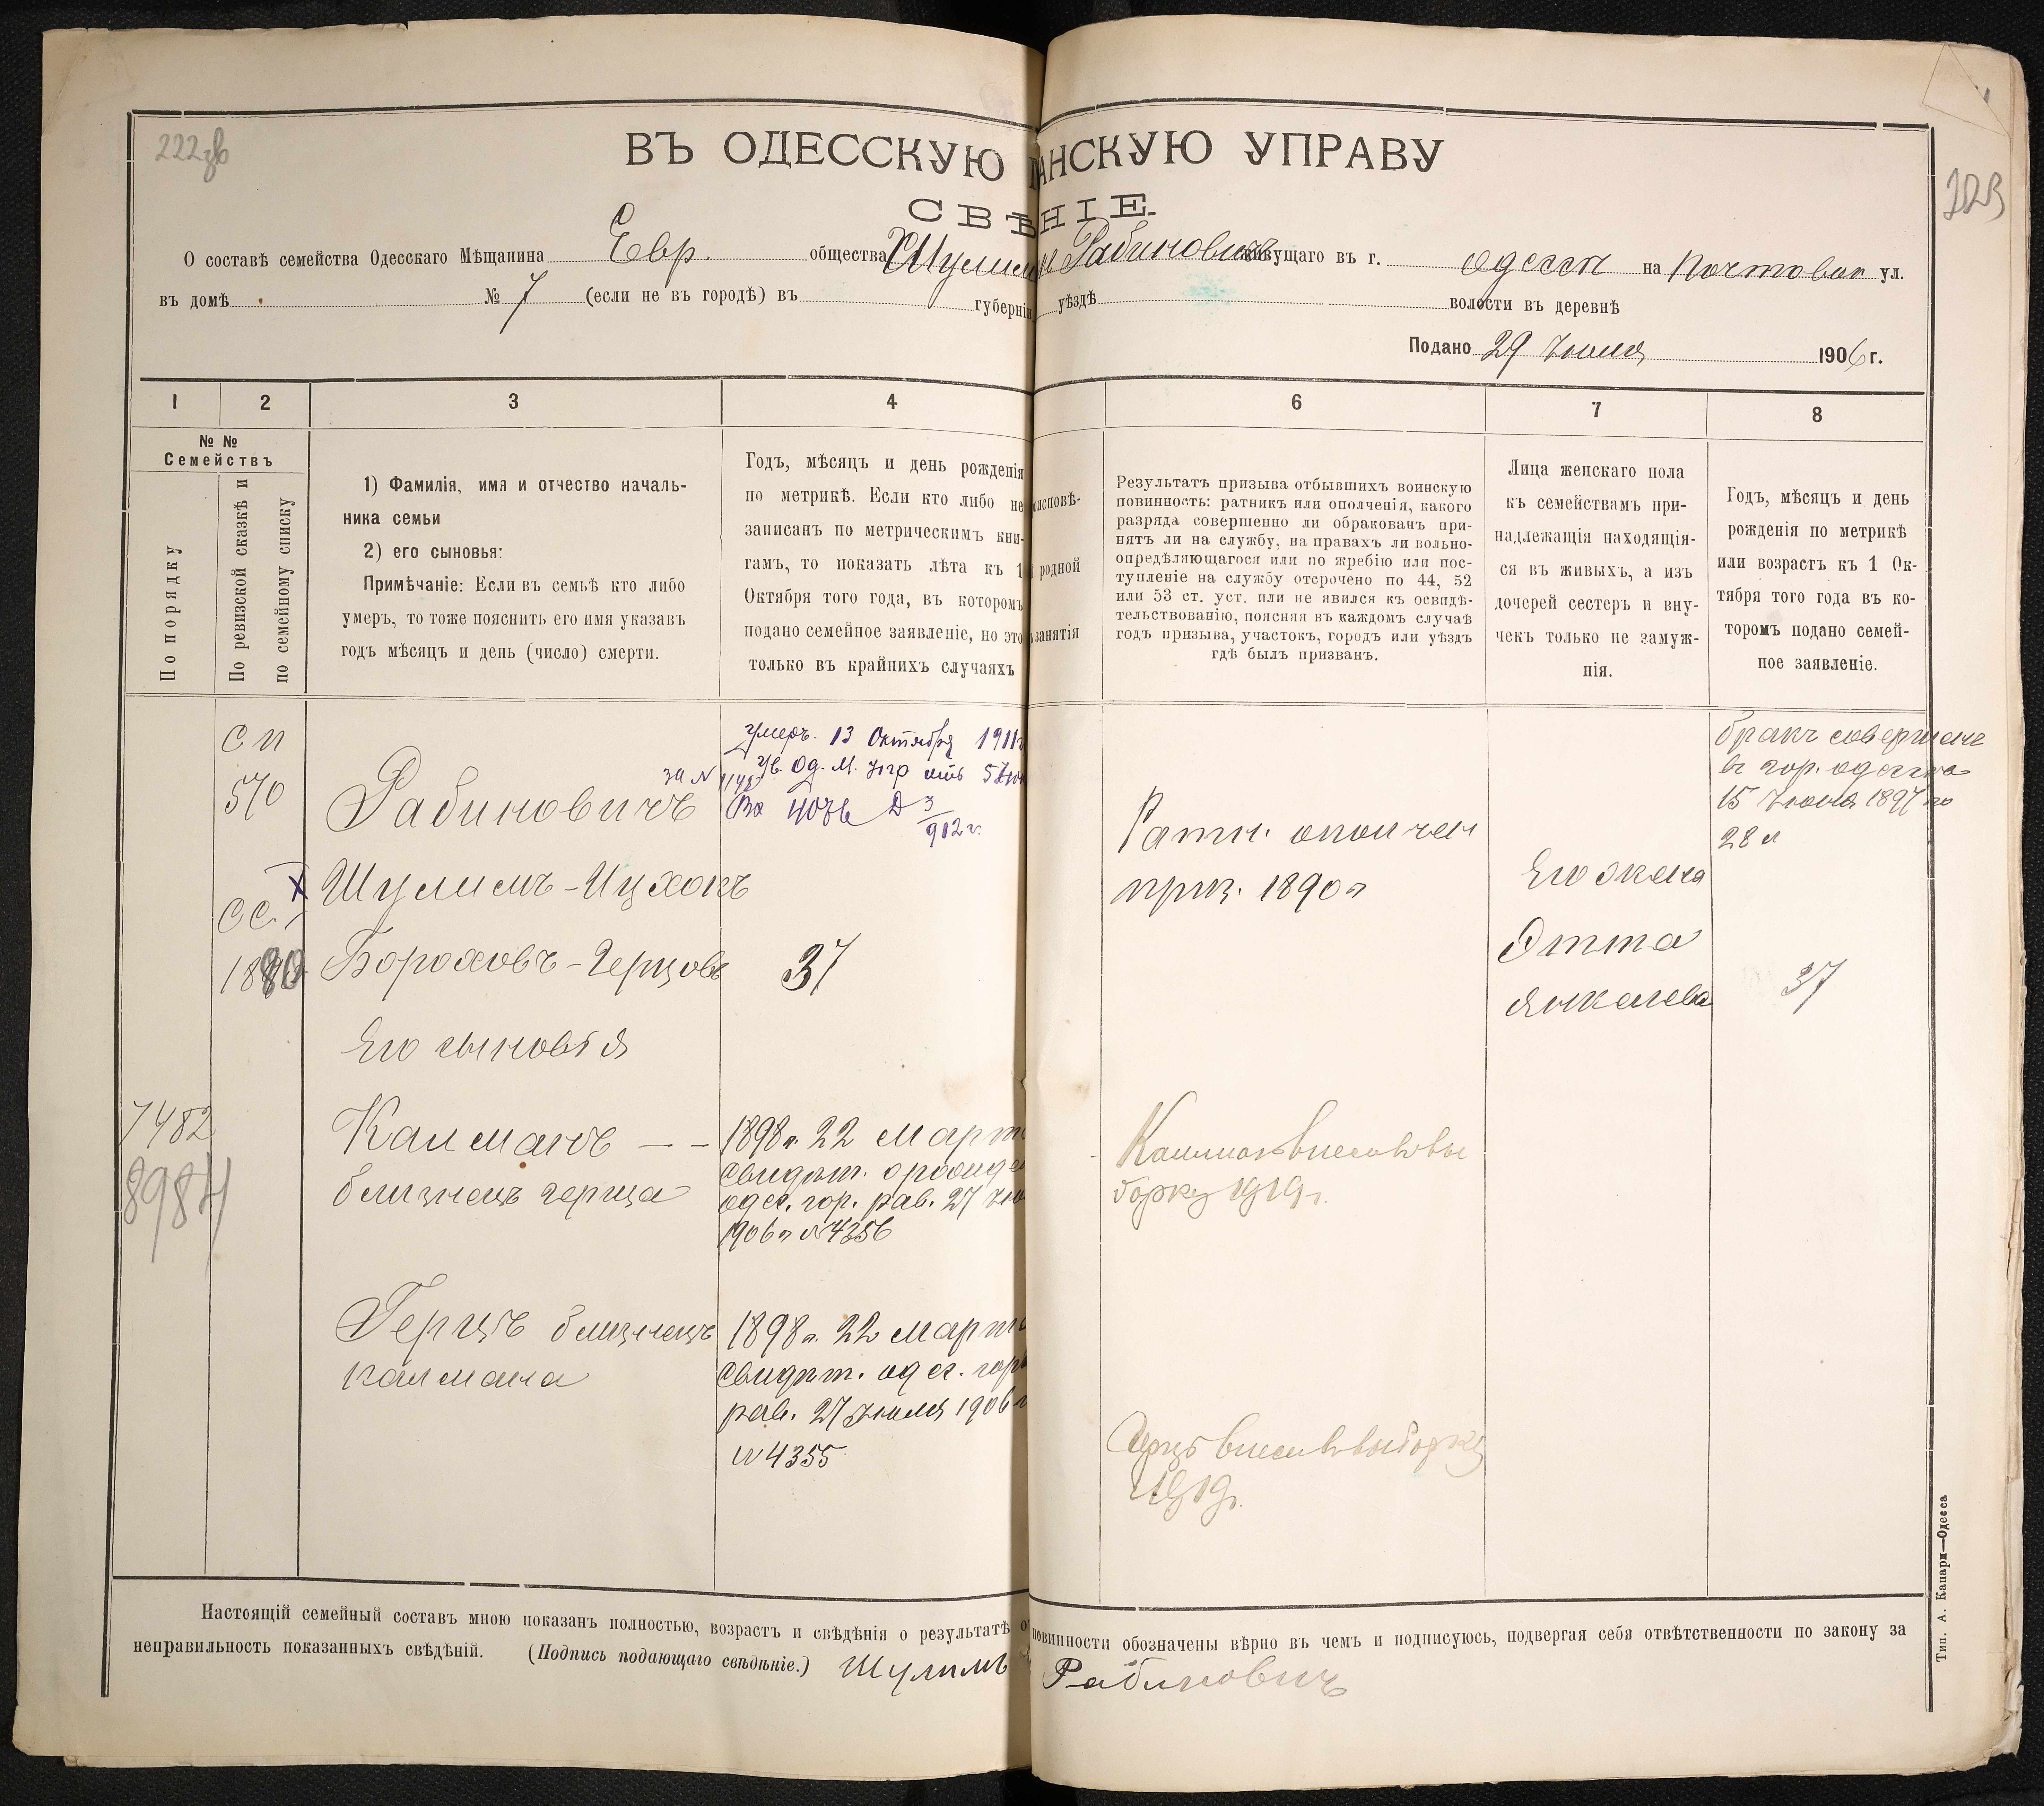 222зв
223
ВЪ ОДЕССКУЮ АНСКУЮ УПРАВУ
СВѢ НІЕ.
О составѣ семейства Одесскаго Мѣщанина Евр. общества Шулим Рабиновичъ живущаго въ г. Одессѣ на Почтовая ул.
въ домѣ № 7 (если не въ городѣ) въ губерніи уѣздѣ волости въ деревнѣ
Подано 29 Іюля 1906 г.
1 2 3 4 6 7 8
№ №
Семействъ
По порядку
По ревизской сказкѣ и
по семейному списку
1) Фамилія, имя и отчество началь-
ника семьи
2) его сыновья:
Примѣчаніе: Если въ семьѣ кто либо
умеръ, то тоже пояснить его имя указавъ
годъ мѣсяцъ и день (число) смерти.
Годъ, мѣсяцъ и день рожденія
по метрикѣ. Если кто либо не
записанъ по метрическимъ кни-
гамъ, то показать лѣта къ 1
Октября того года, въ которомъ
подано семейное заявленіе, но это
только въ крайнихъ случаяхъ
оисповѣ-
родной
занятія
Результатъ призыва отбывшихъ воинскую
повинность: ратникъ или ополченія, какого
разряда совершенно ли обракованъ при-
нятъ ли на службу, на правахъ ли вольно-
опредѣляющагося или по жребію или пос-
тупленіе на службу отсрочено по 44, 52
или 53 ст. уст. или не явился къ освидѣ-
тельствованію, поясняя въ каждомъ случаѣ
годъ призыва, участокъ, городъ или уѣздъ
гдѣ былъ призванъ.
Лица женскаго пола
къ семействамъ при-
надлежащія находящія-
ся въ живыхъ, а изъ
дочерей сестеръ и вну-
чекъ только не замуж-
нія.
Годъ, мѣсяцъ и день
рожденія по метрикѣ
или возрастъ къ 1 Ок-
тября того года въ ко-
торомъ подано семей-
ное заявленіе.
С п
570
ОС. X
1880
Рабиновичъ
Шулимъ-Ицхокъ
Бороховъ-Герцовъ
Его сыновья
7482
8984
Калманъ — —
близнецъ Герца
Герцъ близнецъ
Калмана
умеръ. 13 Октября 1911г
Од. М.
912 г.
37
1898г. 22 март
свидѣт.
одес. гор. рав. 27
1906г №4356
1898г. 22 марта
свидѣт. одес. гор
рав. 27 Іюля 1906г
№4355
Ратн. ополчен
приз. 1890г
Калман внесен в вы
борку 1919г.
Герцъ внесен в выборку
1919г.
Его жена
Этта
Янкелева
бракъ совершенъ
в гор. одесса
15 Іюня 1897 по
28 л
37
Настоящій семейный составъ мною показанъ полностью, возрастъ и свѣдѣнія о результатѣ о повинности обозначены вѣрно въ чемъ и подписуюсь, подвергая себя отвѣтственности по закону за
неправильность показанныхъ свѣдѣній. (Подпись подающаго свѣдѣніе.) Шулимъ Рабиновичъ
Тип. А. Капари—Одесса